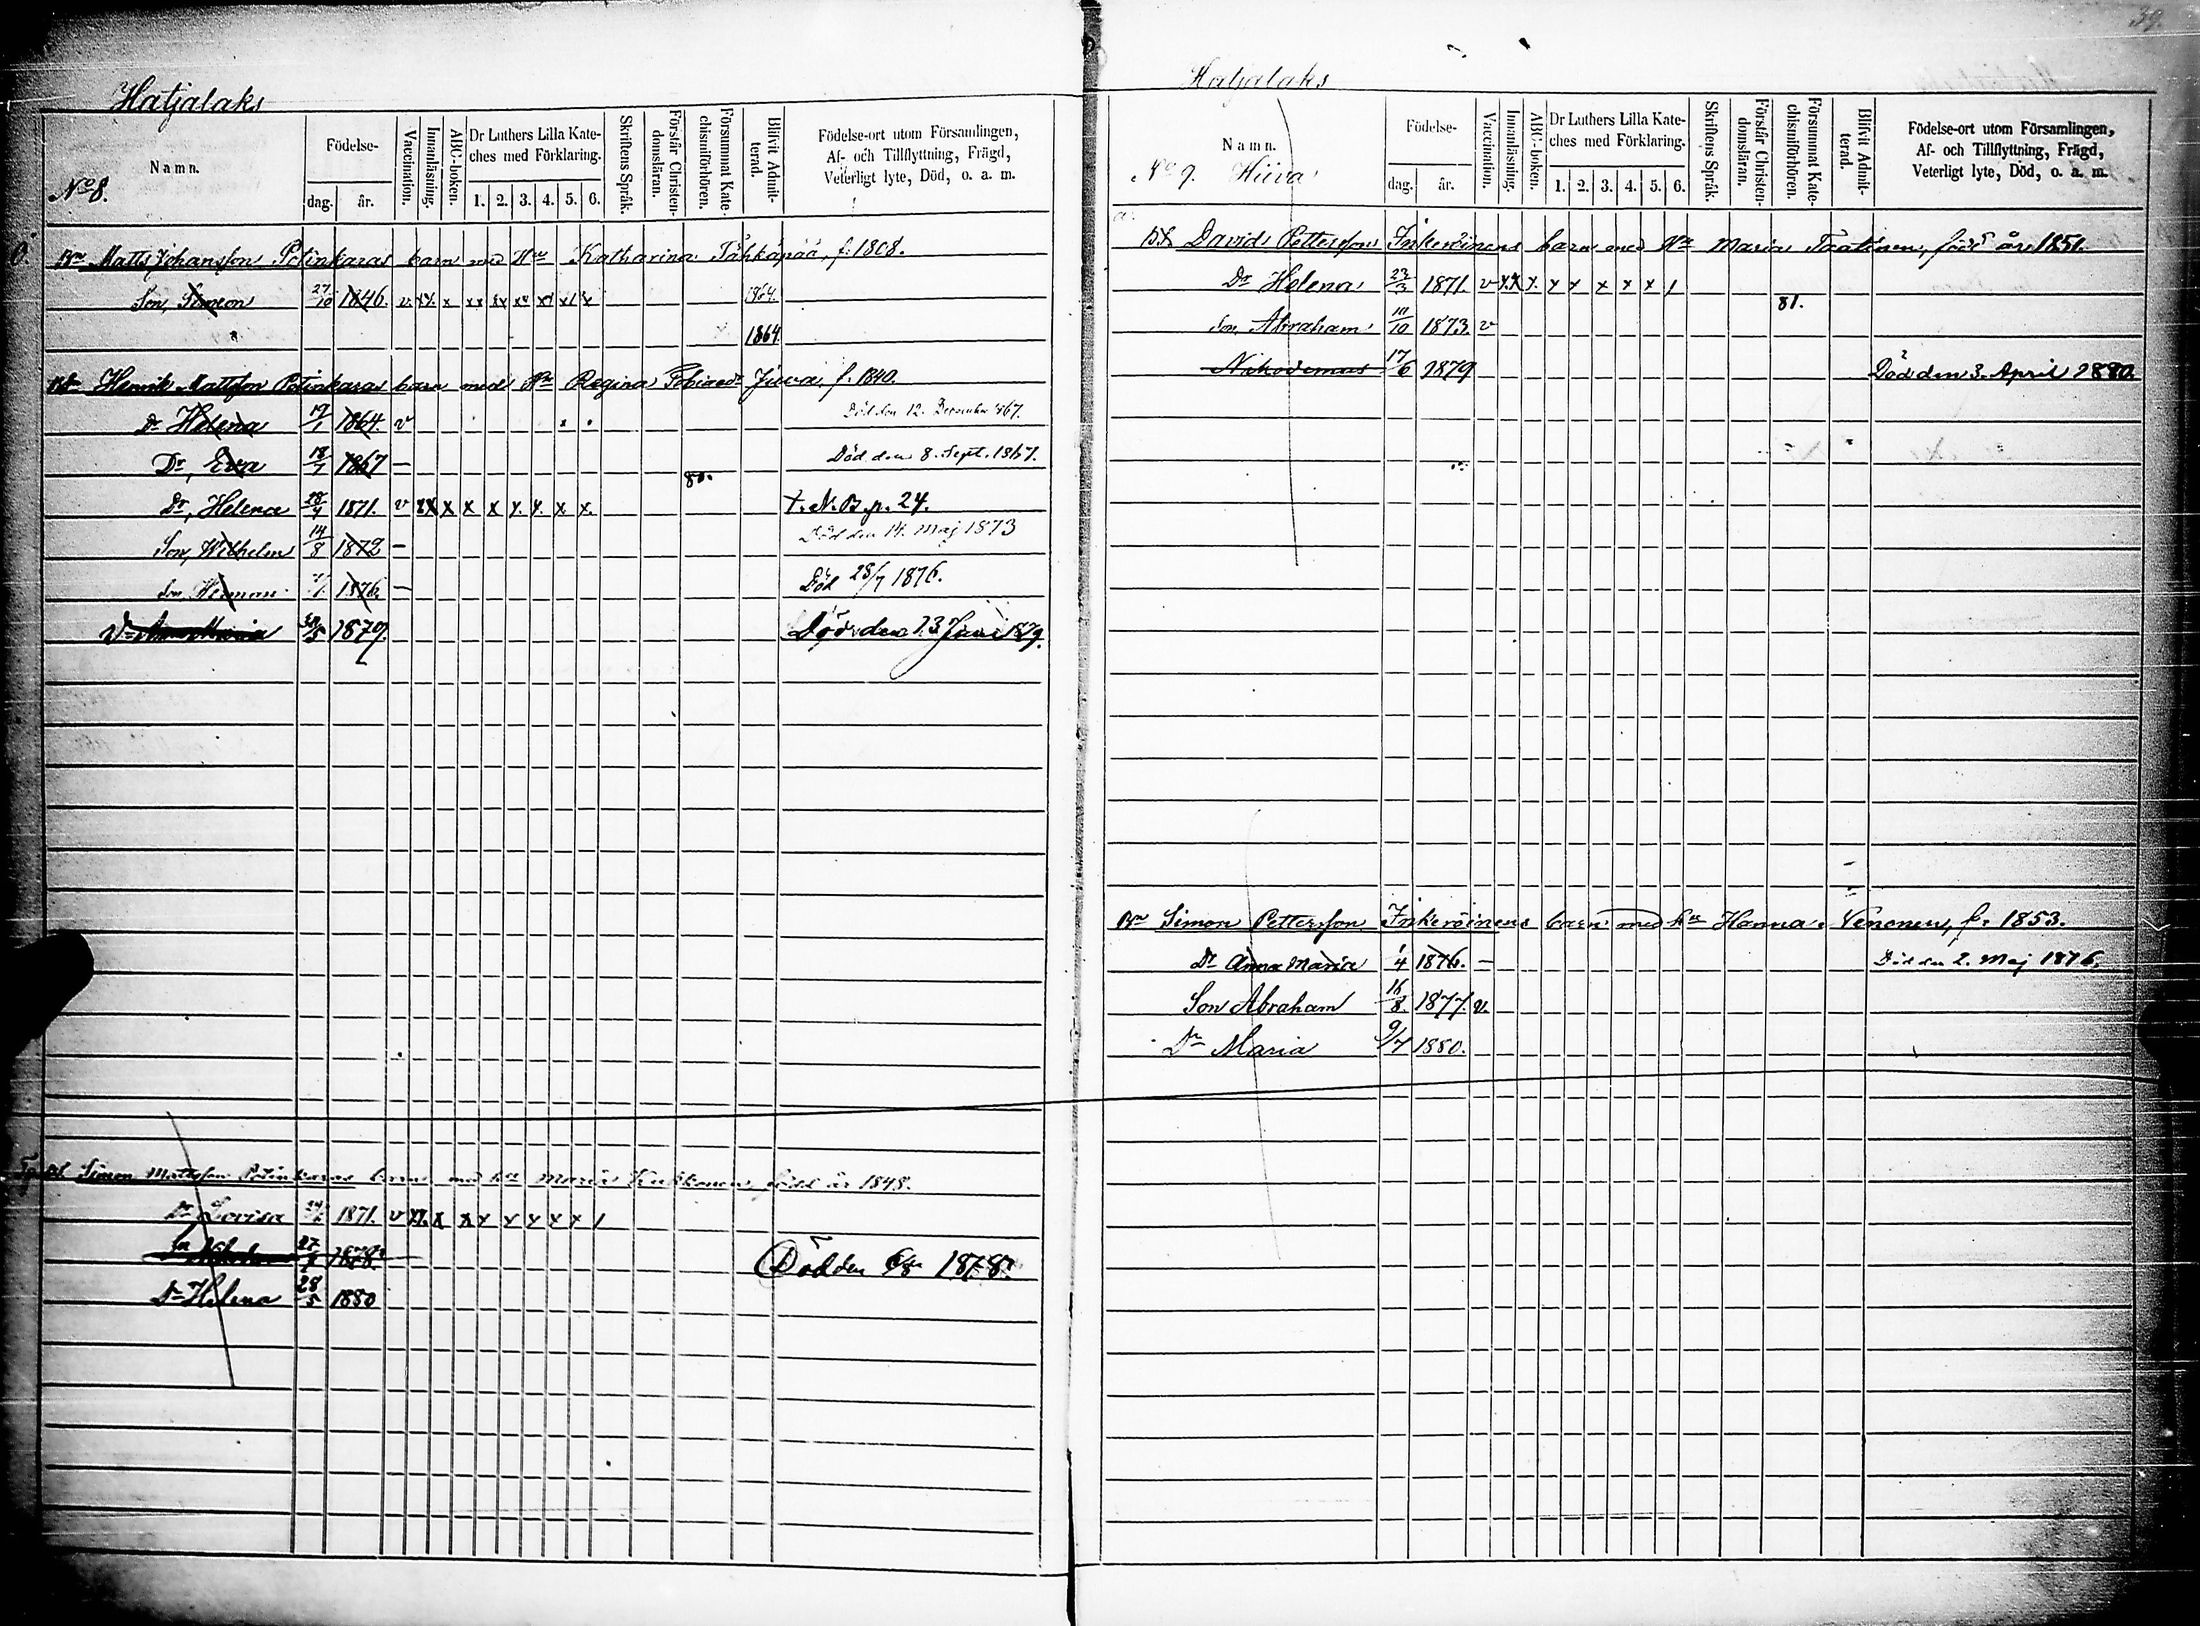 39.
Hatjalaks
Namn.
Födelse-
dag. år.
Vaccination.
Innanläsning.
ABC-boken.
Dr Luthers Lilla Kate-
ches med Förklaring.
1. 2. 3. 4. 5. 6.
Skriftens Språk.
Förstår Christen-
domsläran.
Försummat Kate-
chismiförhören.
Blifvit Admit-
terad.
Födelse-ort utom Församlingen,
Af- och Tillflyttning, Frägd,
Veterligt lyte, Död, o. a. m.
No 8.
Bn Matts Johansson Potinkaras barn med Hu Katharina Tähkäpää, f. 1808.
Son, Simeon 27/10 1846. v xx x xx xx xx xx x x 1864.
1864.
Henrik Mattsson Potinkaras barn med Hu Regina Tobiaedr Juva, f. 1840.
Dr Helena 19/1 1864. v Död den 12. December 1867.
Dr, Eva 18/7 1867 — Död den 8. Sept. 1867.
80.
Dr, Helena 28/4 1871. v xx x x x x x x x. t. N.B. p. 24.
Son, Wilhelm 14/8 1872 — Död den 14. Maj 1873
Son Herman 1876 — Död 28/7 1876.
Anna Maria 30/5 1879. Död den 13 Juni 1879.
Simon Mattsson Potinkaras barn med hu Maria Kukkonen, född år 1848.
Dr Lovisa 1871. v xx. x x x x x x x 1
Sn 27 1878. Död den 6/8 1878.
Dr Helena 28/5 1880
Hatjalaks
Namn.
Födelse-
dag. år.
Vaccination.
Innanläsning.
ABC-boken.
Dr Luthers Lilla Kate-
ches med Förklaring.
1. 2. 3. 4. 5. 6.
Skriftens Språk.
Förstår Christen-
domsläran.
Försummat Kate-
chismiförhören.
Blifvit Admit-
terad.
Födelse-ort utom Församlingen,
Af- och Tillflyttning, Frägd,
Veterligt lyte, Död, o. a. m.
No 9. Hiiva
a.
David Pettersson Inkeröinens barn med Hu Maria Taatinen, född år 1851.
Dr Helena 23/3 1871. v xx x. x x x x x 1
81.
Son, Abraham 10/10 1873. v
Nikodemus 17/6 1879 Död den 3. April 1880.
Bn Simon Pettersson Inkeröinens barn med hu Hanna Venonen, f. 1853.
Dr Anna Maria 1/4 1876. — Död den 2. Maj 1876.
Son Abraham 16/8. 1877. v.
Dr Maria 9/7 1880.